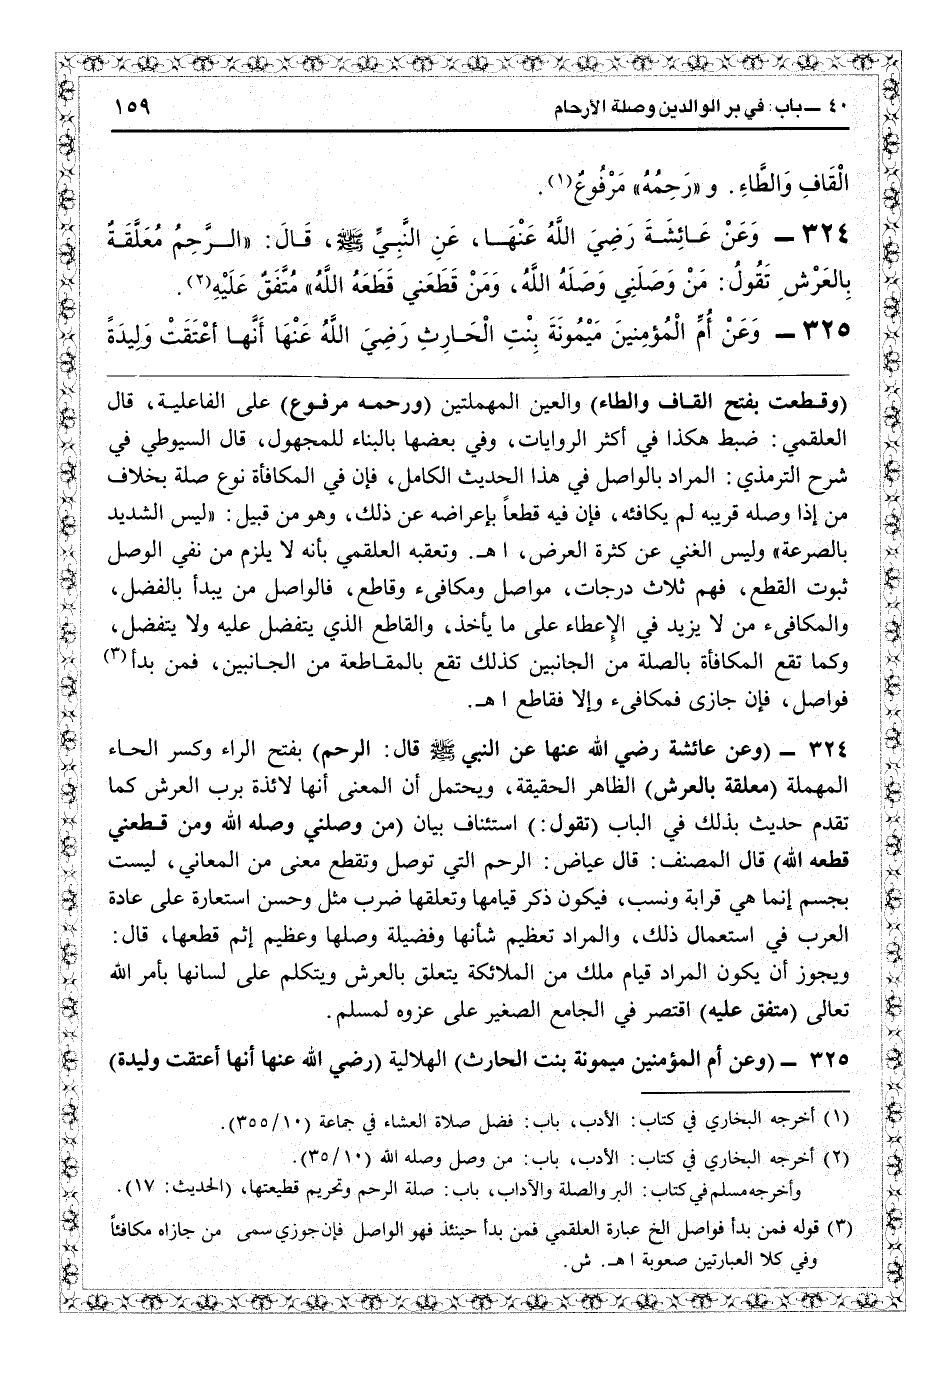 ٤٠ ـ باب: في بر الوالدين وصلة الأرحام ١٥٩
الْقَافِ وَالطَّاءِ. و «رَحِمُهُ» مَرْفُوعٌ(١).
٣٢٤ ـ وَعَنْ عَائِشَةَ رَضِيَ اللَّهُ عَنْهَا، عَنِ النَّبِيِّ ﷺ، قَالَ: «الـرَّحِمُ مُعَلَّقَةٌ
بِالعَرْشِ تَقُولُ: مَنْ وَصَلَنِي وَصَلَهُ اللَّهُ، وَمَنْ قَطَعَني قَطَعَهُ اللَّهُ» مُتَّفَقٌ عَلَيْهِ(٢).
٣٢٥ ـ وَعَنْ أُمِّ الْمُؤمِنِينَ مَيْمُونَةَ بِنْتِ الْحَارِثِ رَضِيَ اللَّهُ عَنْهَا أَنَّهـا أعْتَقَتْ وَلِيدَةً
(وقـطعت بفتح القـاف والطاء) والعين المهملتين (ورحمـه مرفـوع) على الفاعلية، قال
العلقمي: ضبط هكذا في أكثر الروايات، وفي بعضها بالبناء للمجهول، قال السيوطي في
شرح الترمذي: المراد بالواصل في هذا الحديث الكامل، فإن في المكافأة نوع صلة بخلاف
من إذا وصله قريبه لم يكافئه، فإن فيه قطعاً بإعراضه عن ذلك، وهو من قبيل: «ليس الشديد
بالصرعة» وليس الغني عن كثرة العرض، ا هـ. وتعقبه العلقمي بأنه لا يلزم من نفي الوصل
ثبوت القطع، فهم ثلاث درجات، مواصل ومكافىء وقاطع، فالواصل من يبدأ بالفضل،
والمكافىء من لا يزيد في الإعطاء على ما يأخذ، والقاطع الذي يتفضل عليه ولا يتفضل،
وكما تقع المكافأة بالصلة من الجانبين كذلك تقع بالمقـاطعة من الجـانبين، فمن بدأ(٣)
فواصل، فإن جازى فمكافىء وإلا فقاطع ا هـ.
٣٢٤ ـ (وعن عائشة رضي الله عنها عن النبي ﷺ قال: الرحم) بفتح الراء وكسر الحـاء
المهملة (معلقة بالعرش) الظاهر الحقيقة، ويحتمل أن المعنى أنها لائذة برب العرش كما
تقدم حديث بذلك في الباب (تقول:) استئناف بيان (من وصلني وصله الله ومن قـطعني
قطعه الله) قال المصنف: قال عياض: الرحم التي توصل وتقطع معنى من المعاني، ليست
بجسم إنما هي قرابة ونسب، فيكون ذكر قيامها وتعلقها ضرب مثل وحسن استعارة على عادة
العرب في استعمال ذلك، والمراد تعظيم شأنها وفضيلة وصلها وعظيم إثم قطعها، قال:
ويجوز أن يكون المراد قيام ملك من الملائكة يتعلق بالعرش ويتكلم على لسانها بأمر الله
تعالى (متفق عليه) اقتصر في الجامع الصغير على عزوه لمسلم.
٣٢٥ ـ (وعن أم المؤمنين ميمونة بنت الحارث) الهلالية (رضي الله عنها أنها أعتقت وليدة)
(١) أخرجه البخاري في كتاب: الأدب، باب: فضل صلاة العشاء في جماعة (٣٥٥/١٠).
(٢) أخرجه البخاري في كتاب: الأدب، باب: من وصل وصله الله (٣٥/١٠).
وأخرجه مسلم في كتاب: البر والصلة والآداب، باب: صلة الرحم وتحريم قطيعتها، (الحديث: ١٧).
(٣) قوله فمن بدأ فواصل الخ عبارة العلقمي فمن بدأ حينئذ فهو الواصل فإن جوزي سمى من جازاه مكافئاً
وفي كلا العبارتين صعوبة ا هـ. ش.